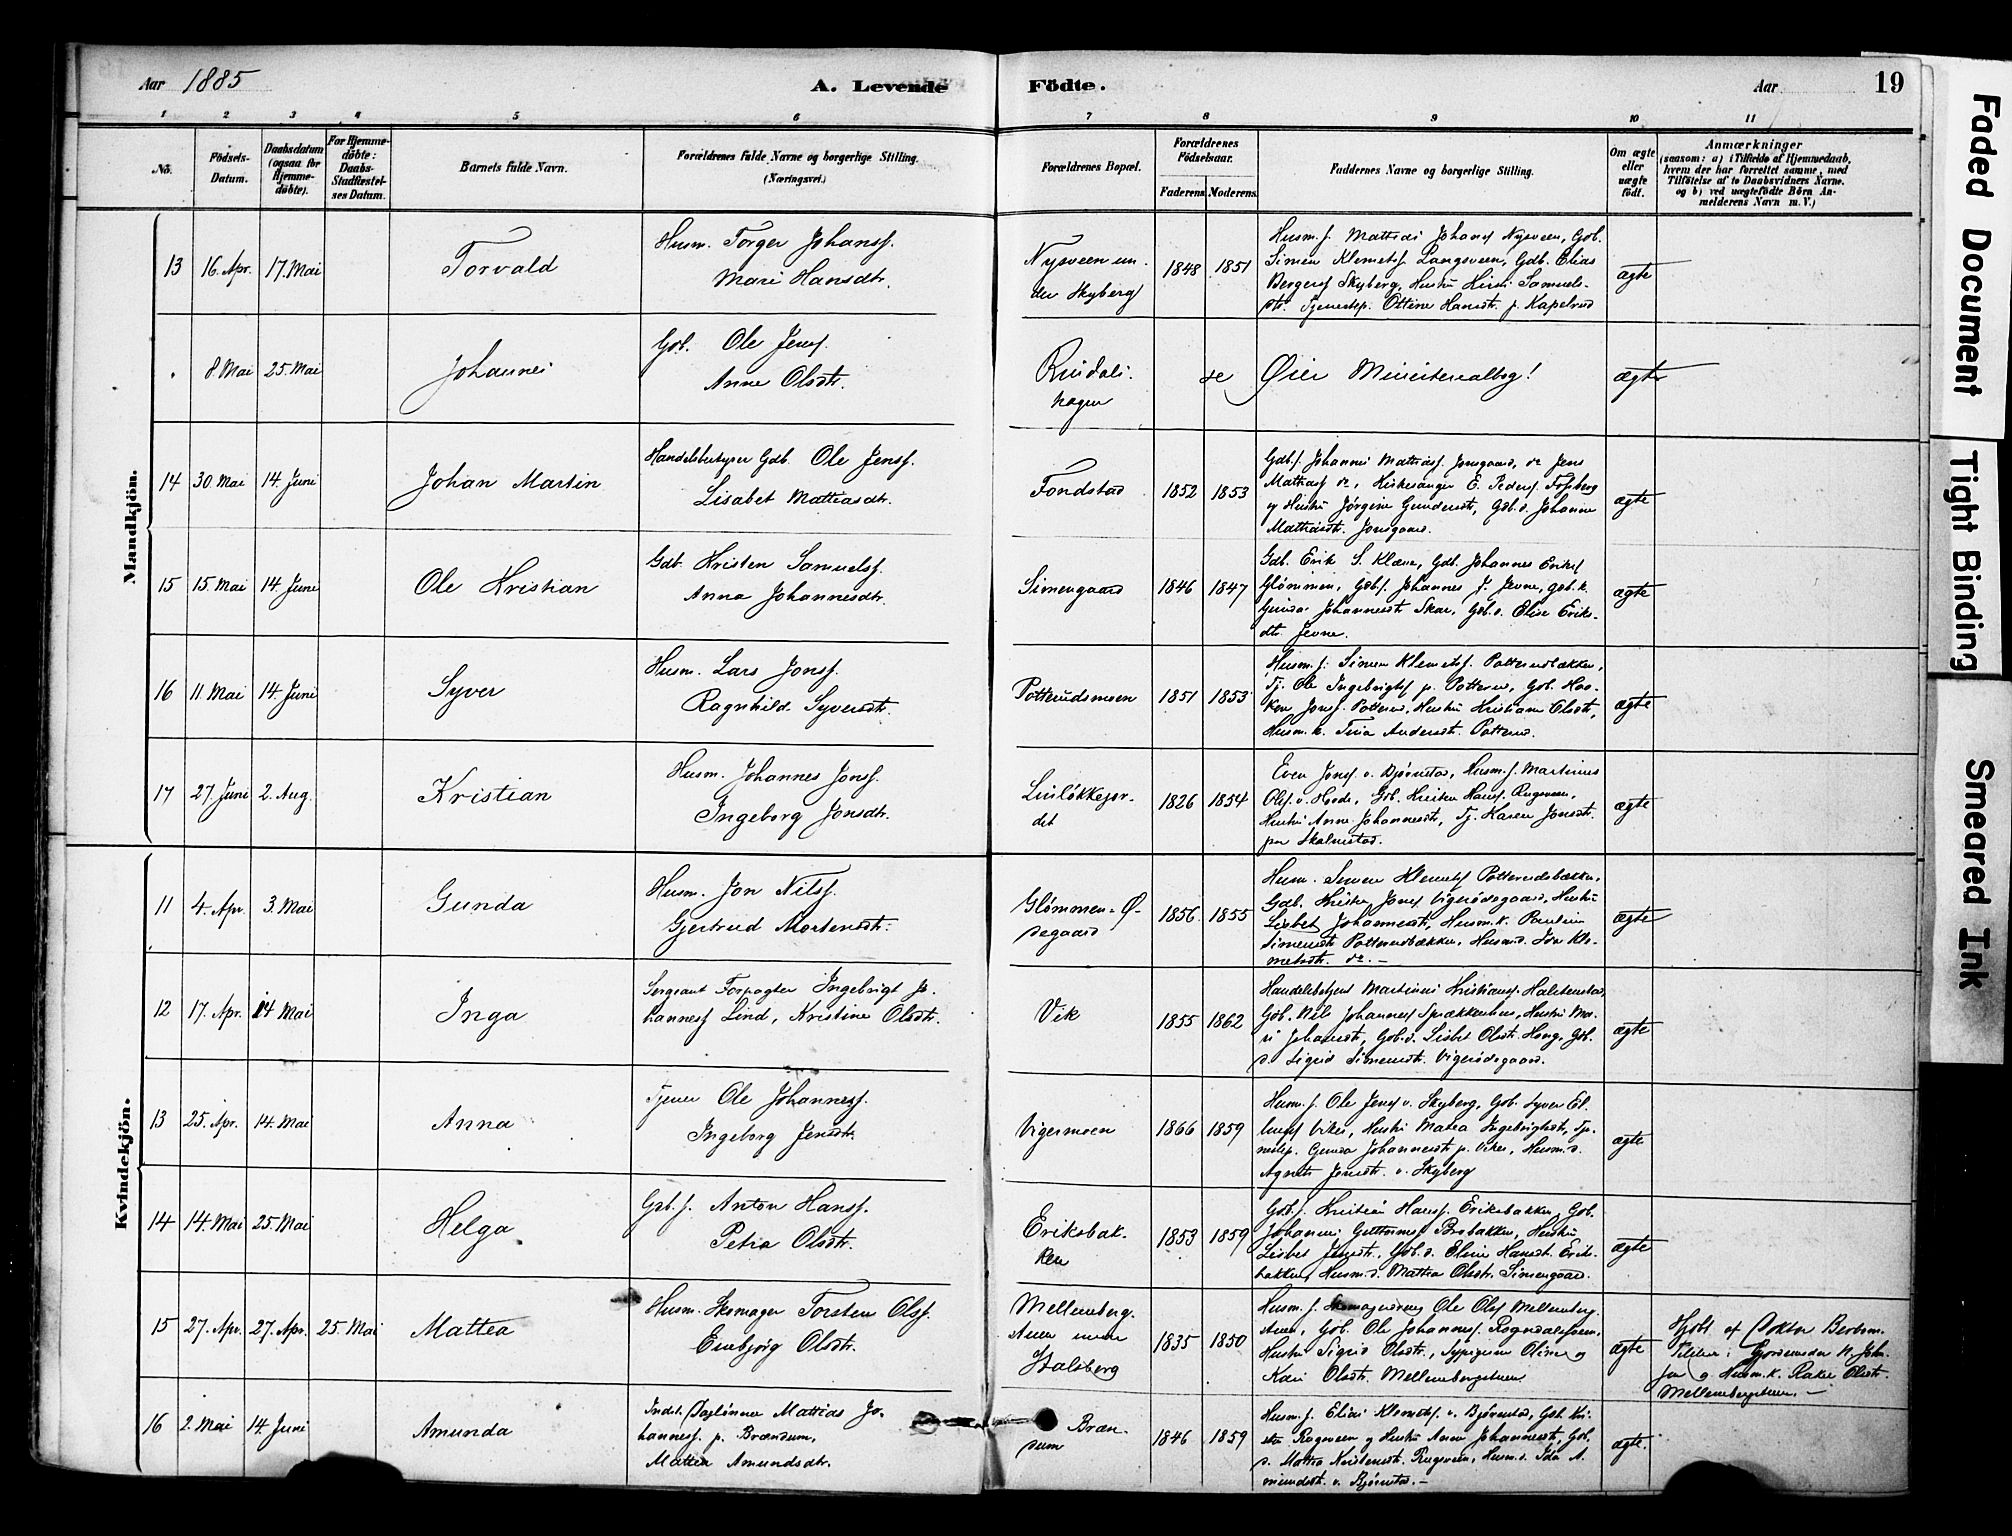 Aar 1885
A. Levende
Födte.
Aar
19
1 2 3 4 5 6 7 8 9 10 11
No.
Födsels-
Datum.
Daabsdatum
(ogsaa for
Hjemme-
döbte).
For Hjemme-
döbte:
Daabs-
Stadfæstel-
ses Datum.
Barnets fulde Navn.
Forældrenes fulde Navne og borgerlige Stilling.
(Næringsvei.)
Forældrenes Bopæl.
Forældrenes
Födselsaar.
Faderens Moderens
Faddernes Navne og borgerlige Stilling.
Om ægte
eller
uægte
födt.
Anmærkninger
(saasom: a) i Tilfælde af Hjemmedaab,
hvem der har forrettet samme, med
Tilföielse af to Daabsvidners Navne.
og b) ved uægtefödte Börn An-
melderens Navn m. V.)
Mandkjön.
13 16. Apr. 17. Mai
Torvald
Husm. Torger Johansf.
Mari Hansdtr.
Nysveen un-
der Skyberg
1848 1851
Husm. f. Mathias Johansf Nysveen, Gdb.
Simen Klemetsf. Langsveen, Gdb. Elias
Bergersf Skyberg, Hustru Kirsti Samuels-
dtr. Tjenestep. Ottine Hansdtr. p. Kapelrud
ægte
8 Mai 25. Mai
Johannes
Gdb. Ole Jensf.
Anne Olsdtr.
Rindals-
hagen
se Øier Ministerialbog!
ægte
14 30 Mai 14. Juni
Johan Martin
Handelsbestyrer Gdb. Ole Jensf.
Lisabet Mattiasdtr.
Fondstad
1852 1853
Gdb.f. Johannes Mathiasf. Jonsgaard, do Jens
Mathiasf do, Kirkesanger E. Pedersf. Fossberg
og Hustru Jørgine Gundersdtr, Gdb.d. Johanne
Mathiasdtr. Jonsgaard.
ægte
15 15. Mai 14. Juni
Ole Kristian
Gdb. Kristen Samuelsf.
Anna Johannesdtr.
Simengaard
1846 1847
Gdb. Erik S. Klæva, Gdb. Johannes Eriksf
Glømmen, Gdbf. Johannes J. Jevne, Gdb.k.
Gunda Johannesdtr Skar, Gdb.d. Elise Eriks-
dtr. Jevne.
ægte
16 11 Mai 14. Juni
Syver
Husm. Lars Jonsf.
Ragnhild Syversdtr.
Potterudsmoen
1851 1853
Husm. f. Simen Klemetsf. Potterudbækken,
Tj. Ole Ingebrigtsf p. Potterud, Gdb. Haa-
kon Jonsf. Potterud, Hustru Kristiane Olsdtr,
Husm.k. Tina Andersdtr. Potterud.
ægte
17 27. Juni 2. Aug.
Kristian
Husm. Johannes Jonsf.
Ingeborg Jonsdtr.
Linløkkejor-
det
1826 1854
Even Jonsf v. Bjørnstad, Husm.f. Martinus
Olsf. v. Hovde, Gdb. Kristen Hansf. Rugsveen,
Hustru Anne Johannesdtr, Tj. Karen Jonsdtr.
paa Skalmstad.
ægte
Kvindekjön.
11 4. Apr. 3. Mai
Gunda
Husm. Jon Nilsf.
Gjertrud Mortensdtr.
Glømmen-Ø-
degaard
1856 1855
Husm. Simen Klemetsf Potterudsbækken,
Gdb. Kristen Jonsf Vigerødegaard, Hustru
Lisbet Johannesdtr, Husm.k. Pauline
Simensdtr Potterudbækken, Husm.d. Ida Kle-
metsdtr. do.-
ægte
12 17. Apr. 14 Mai
Inga
Sergeant Forpagter Ingebrigt Jo-
hannesf Lind, Kristine Olsdtr.
Vik
1855 1862
Handelsbetjent Martinus Kristiansf. Halstenstad,
Gdb. Nils Johannesf Sprækkenhus, Hustru Ma-
ri Johansdtr, Gdb.d. Lisbet Olsdtr. Haug, Gdb.
d. Sigrid Simensdtr. Vigerødegaard.
ægte
13 25. Apr. 14. Mai
Anna
Tjener Ole Johannesf.
Ingeborg Jensdtr.
Vigermoen
1866 1859
Husm. f. Ole Jensf v. Skyberg, Gdb. Syver
Viker, Hustru Matea Ingebrigtsdtr, Tje-
nestep. Gunda Johannesdtr p. Viker, Husm.d.
Agnete Jensdtr. v. Skyberg
ægte
14 14. Mai 25. Mai
Helga
Gdb. f. Anton Hansf.
Petra Olsdtr.
Eriksbak-
ken
1853 1859
Gdb.f. Kristian Hansf. Eriksbakken, Gdb.
Johannes Guttormsf Brobakken, Hustru
Lisbet Jensdtr, Gdb.d. Eline Hansdtr Eriks-
bakken, Husm.d. Mathea Olsdtr. Simengaard.
ægte
15 27. Apr. 27. Apr. 25. Mai
Mattea
Husm. Skomager Torsten Olsf.
Embjørg Olsdtr.
Mellemberg-
steen under
Stalsberg
1835 1850
Husm. f. Skomagersvend Ole Olsf Mellemberg-
steen, Gdb. Ole Johannesf. Rogndalssveen,
Hustru Sigrid Olsdtr., Sypigerne Oline og
Kari Olsdtr. Mellembergsteen
ægte
Hjdbt. af Doktor
Vidner: Gjordemoder
og Husm.k. Rakel Olsdtr.
Mellembergsteen.-
16 2. Mai 14. Juni
Amunda
Inderst Daglønner Mattias Jo-
hannesf. p. Brændum,
Mattea Amundsdtr.
Bræn-
dum
1846 1859
Husm. f. Elias Klemetsf. v. Bjørnstad, Gdb. Kri-
sten Rugsveen og Hustru Anne Johannesdtr, Gdb.
d. Mattea Kristensdtr. Rugsveen, Husm.d. Ida A-
mundsdtr. v. Bjørnstad.-
ægte.
Faded Document
Tight Binding
Smeared Ink